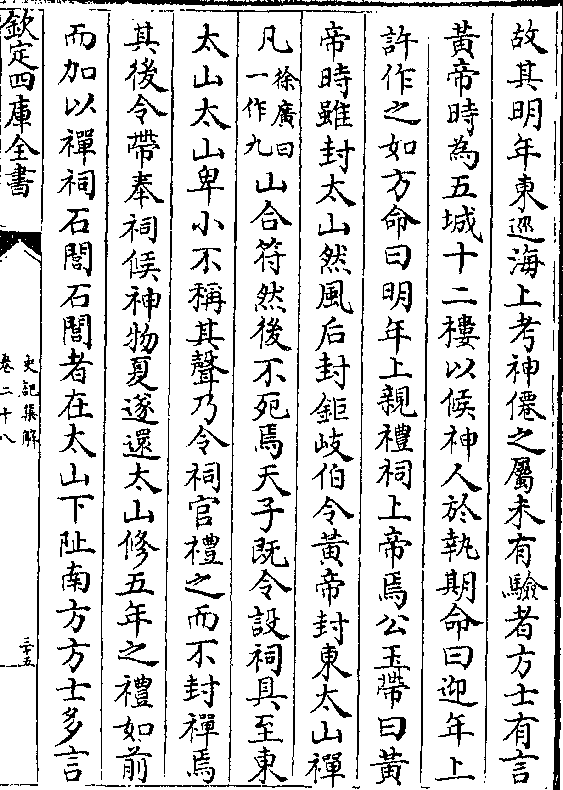 故其明年東巡海上考神僊之屬未有驗者方士有言
黃帝時為五城十二樓以候神人於執期命曰迎年上
許作之如方命曰明年上親禮祠上帝焉公玉帶曰黃
帝時雖封太山然風后封鉅岐伯令黃帝封東太山禪
凡徐廣曰一作九山合符然後不死焉天子既令設祠具至東
太山太山卑小不稱其聲乃令祠官禮之而不封禪焉
其後令帶奉祠候神物夏遂還太山修五年之禮如前
而加以禪祠石閭石閭者在太山下阯南方方士多言
欽定四庫全書
史記集解
卷二十八
三十五